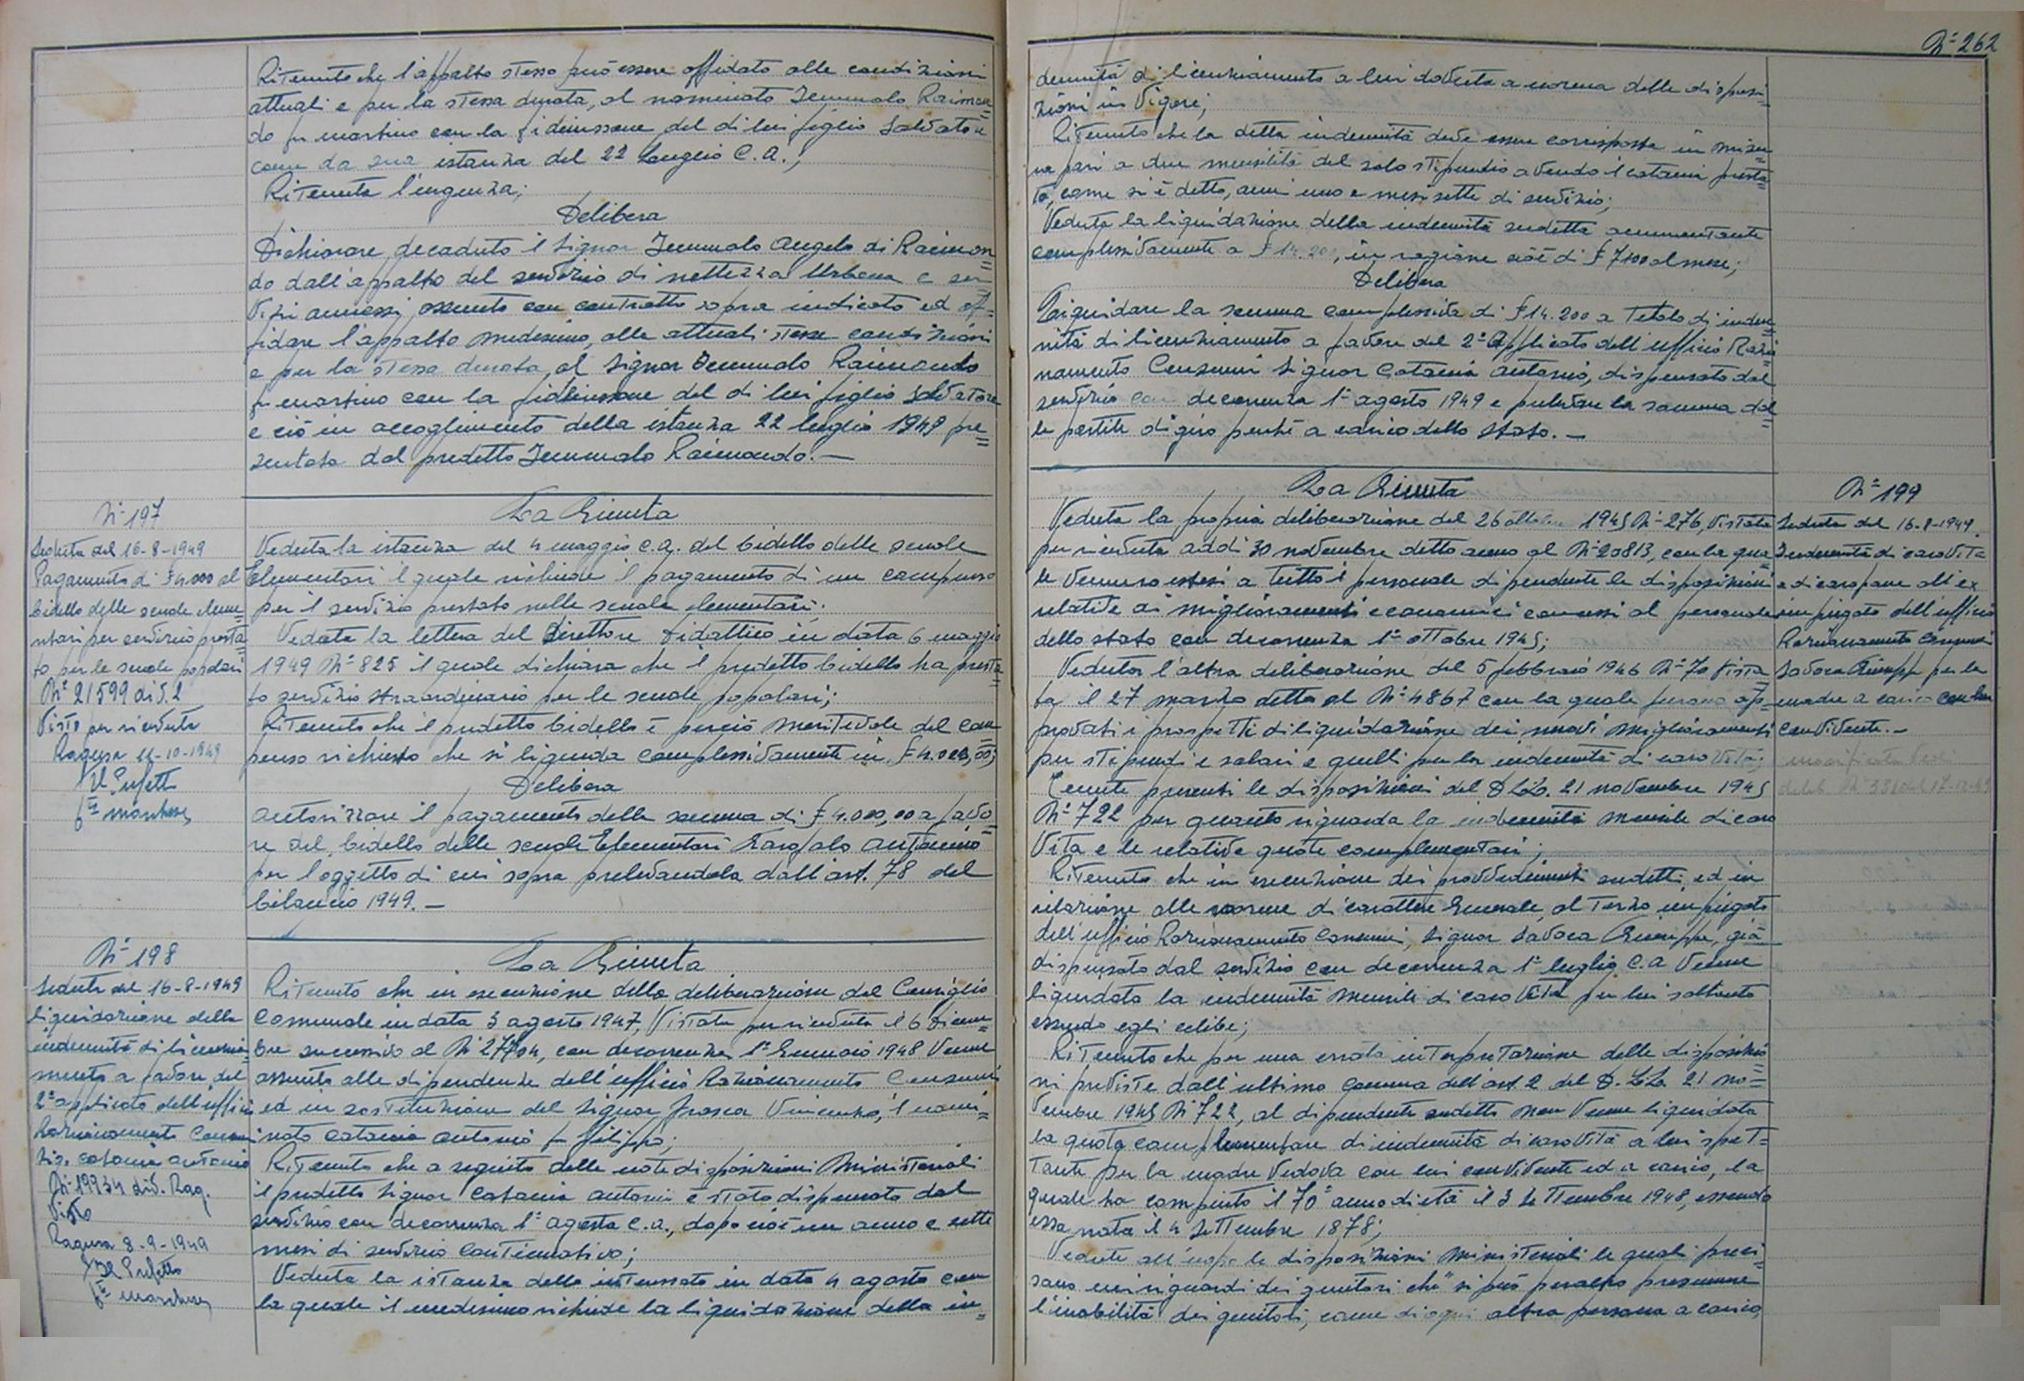 Ritenuto che l'appalto stesso può essere affidato alle condizioni
attuali e per la stessa durata, al nominato Iemmolo Raimon=
do fu Martino con la fideiussione del di lui figlio Salvatore
come da sua istanza del 22 Luglio C.A.;
Ritenuta l'urgenza;
Delibera
Dichiarare decaduto il Signor Iemmolo Angelo di Raimon=
do dall'appalto del servizio di nettezza Urbana e ser=
vizi annessi, assunto con contratto sopra indicato ed af=
fidare l'appalto medesimo, alle attuali stesse condizioni
e per la stessa durata, al Signor Iemmolo Raimondo
fu Martino con la fideiussione del di lui figlio Salvatore
e ciò in accoglimento della istanza 22 luglio 1949 pre=
sentata dal predetto Iemmolo Raimondo.—
N° 197
Seduta del 16-8-1949
Pagamento di £4.000 al
bidello delle scuole eleme
ntari per servizio presta=
to per le scuole popolari
N° 21599 div.2
Visto per ricevuta
Ragusa 11-10-1949
Il Prefetto
f.to Marchese
La Giunta
Veduta la istanza del 4 maggio c.a. del bidello delle scuole
Elementari il quale richiede il pagamento di un compenso
per il servizio prestato nelle scuole elementari;
Veduta la lettera del Direttore Didattico in data 6 maggio
1949 N° 825 il quale dichiara che il predetto bidello ha presta
to servizio straordinario per le scuole popolari;
Ritenuto che il predetto bidello è perciò meritevole del com
penso richiesto che si liquida complessivamente in £4.000,00;
Delibera
Autorizzare il pagamento della somma di £4.000,00 a favo=
re del bidello delle scuole Elementari Antonino
per l'oggetto di cui sopra prelevandola dall'art. 78 del
bilancio 1949.—
N° 198
Seduta del 16-8-1949
liquidazione della
indennità di licenzia=
mento a favore del
2° applicato dell'ufficio
Razionamento Consumi
Sig. Catania Antonio
N° 19934 div. Rag.
Visto
Ragusa 8-9-1949
Il Prefetto
f.to Marchese
La Giunta
Ritenuto che in esecuzione della deliberazione del Consiglio
Comunale in data 3 agosto 1947, Vistata per ricevuta il 6 Dicem=
bre successivo al N° 27704, con decorrenza 1° Gennaio 1948 venne
assunto alle dipendenze dell'ufficio Razionamento Consumi
ed in sostituzione del Signor Frasca Vincenzo, il nomi=
nato Catania Antonio fu Filippo;
Ritenuto che a seguito delle note disposizioni Ministeriali
il predetto Signor Catania Antonio è stato dispensato dal
servizio con decorrenza 1° agosto c.a., dopo cioè un anno e sette
mesi di servizio continuativo;
Veduta la istanza dello interessato in data 4 agosto con
la quale il medesimo richiede la liquidazione della in=
N° 262
dennità di licenziamento a lui dovuta a norma delle disposi=
zioni in Vigore;
Ritenuto che la detta indennità deve essere corrisposta in misu=
ra pari a due mensilità del solo stipendio avendo il Catania presta=
to, come si è detto, anni uno e mesi sette di servizio;
Veduta la liquidazione della indennità sudetta ammontante
complessivamente a £14.200, in ragione cioè di £7100 al mese;
Delibera
Liquidare la somma complessiva di £14.200 a Titolo di inden
nità di licenziamento a favore del 2° Applicato dell'ufficio Razio
namento Consumi Signor Catania Antonio, dispensato dal
servizio con decorrenza 1° agosto 1949 e prelevare la somma dal
le partite di giro perché a carico dello Stato.—
La Giunta
Veduta la propria deliberazione del 26 ottobre 1945 N° 276, Vistata
per ricevuta addì 30 novembre detto anno al N° 20813, con la qua
le vennero estesi a tutto il personale dipendente le disposizioni
relative ai miglioramenti economici concessi al personale
dello Stato con decorrenza 1° ottobre 1945;
Veduta l'altra deliberazione del 5 febbraio 1946 N° 70 Vista
ta il 27 marzo detto al N° 4867 con la quale furono ap=
provati i prospetti di liquidazione dei nuovi miglioramenti
per stipendi e salari e quelli per la indennità di caro Vita;
Tenute presenti le disposizioni del D.L.L. 21 novembre 1945
N° 722 per quanto riguarda la indennità mensile di caro
Vita e le relative quote complementari;
Ritenuto che in esecuzione dei provvedimenti sudetti, ed in
relazione alle norme di carattere Generale, al Terzo impiegato
dell'ufficio Razionamento Consumi, Signor Savoca Giuseppe, già
dispensato dal servizio con decorrenza 1° luglio c.a. venne
liquidata la indennità mensile di caro Vita per lui soltanto
essendo egli celibe;
Ritenuto che per una errata interpretazione delle disposizio
ni previste dall'ultimo comma dell'art. 2 del D.L.L. 21 no=
vembre 1945 N° 722, al dipendente sudetto non venne liquidata
la quota complementare di indennità di caro Vita a lui spet=
tante per la madre Vedova con lui convivente ed a carico, la
quale ha compiuto il 70° anno di età il 3 Settembre 1948, essendo
essa nata il 4 Settembre 1878;
Vedute all'uopo le disposizioni Ministeriali le quali preci=
sano nei riguardi dei genitori che "si può peraltro presumere
l'inabilità dei genitori, come di ogni altra persona a carico,
N° 199
Seduta del 16-8-1949.
Indennità di caro Vita
e di caropane all'ex
impiegato dell'ufficio
Razionamento Consumi
Savoca Giuseppe per la
madre a carico con lui
convivente.—
modificata Vedi
delib. N° 331 del 17-12-49